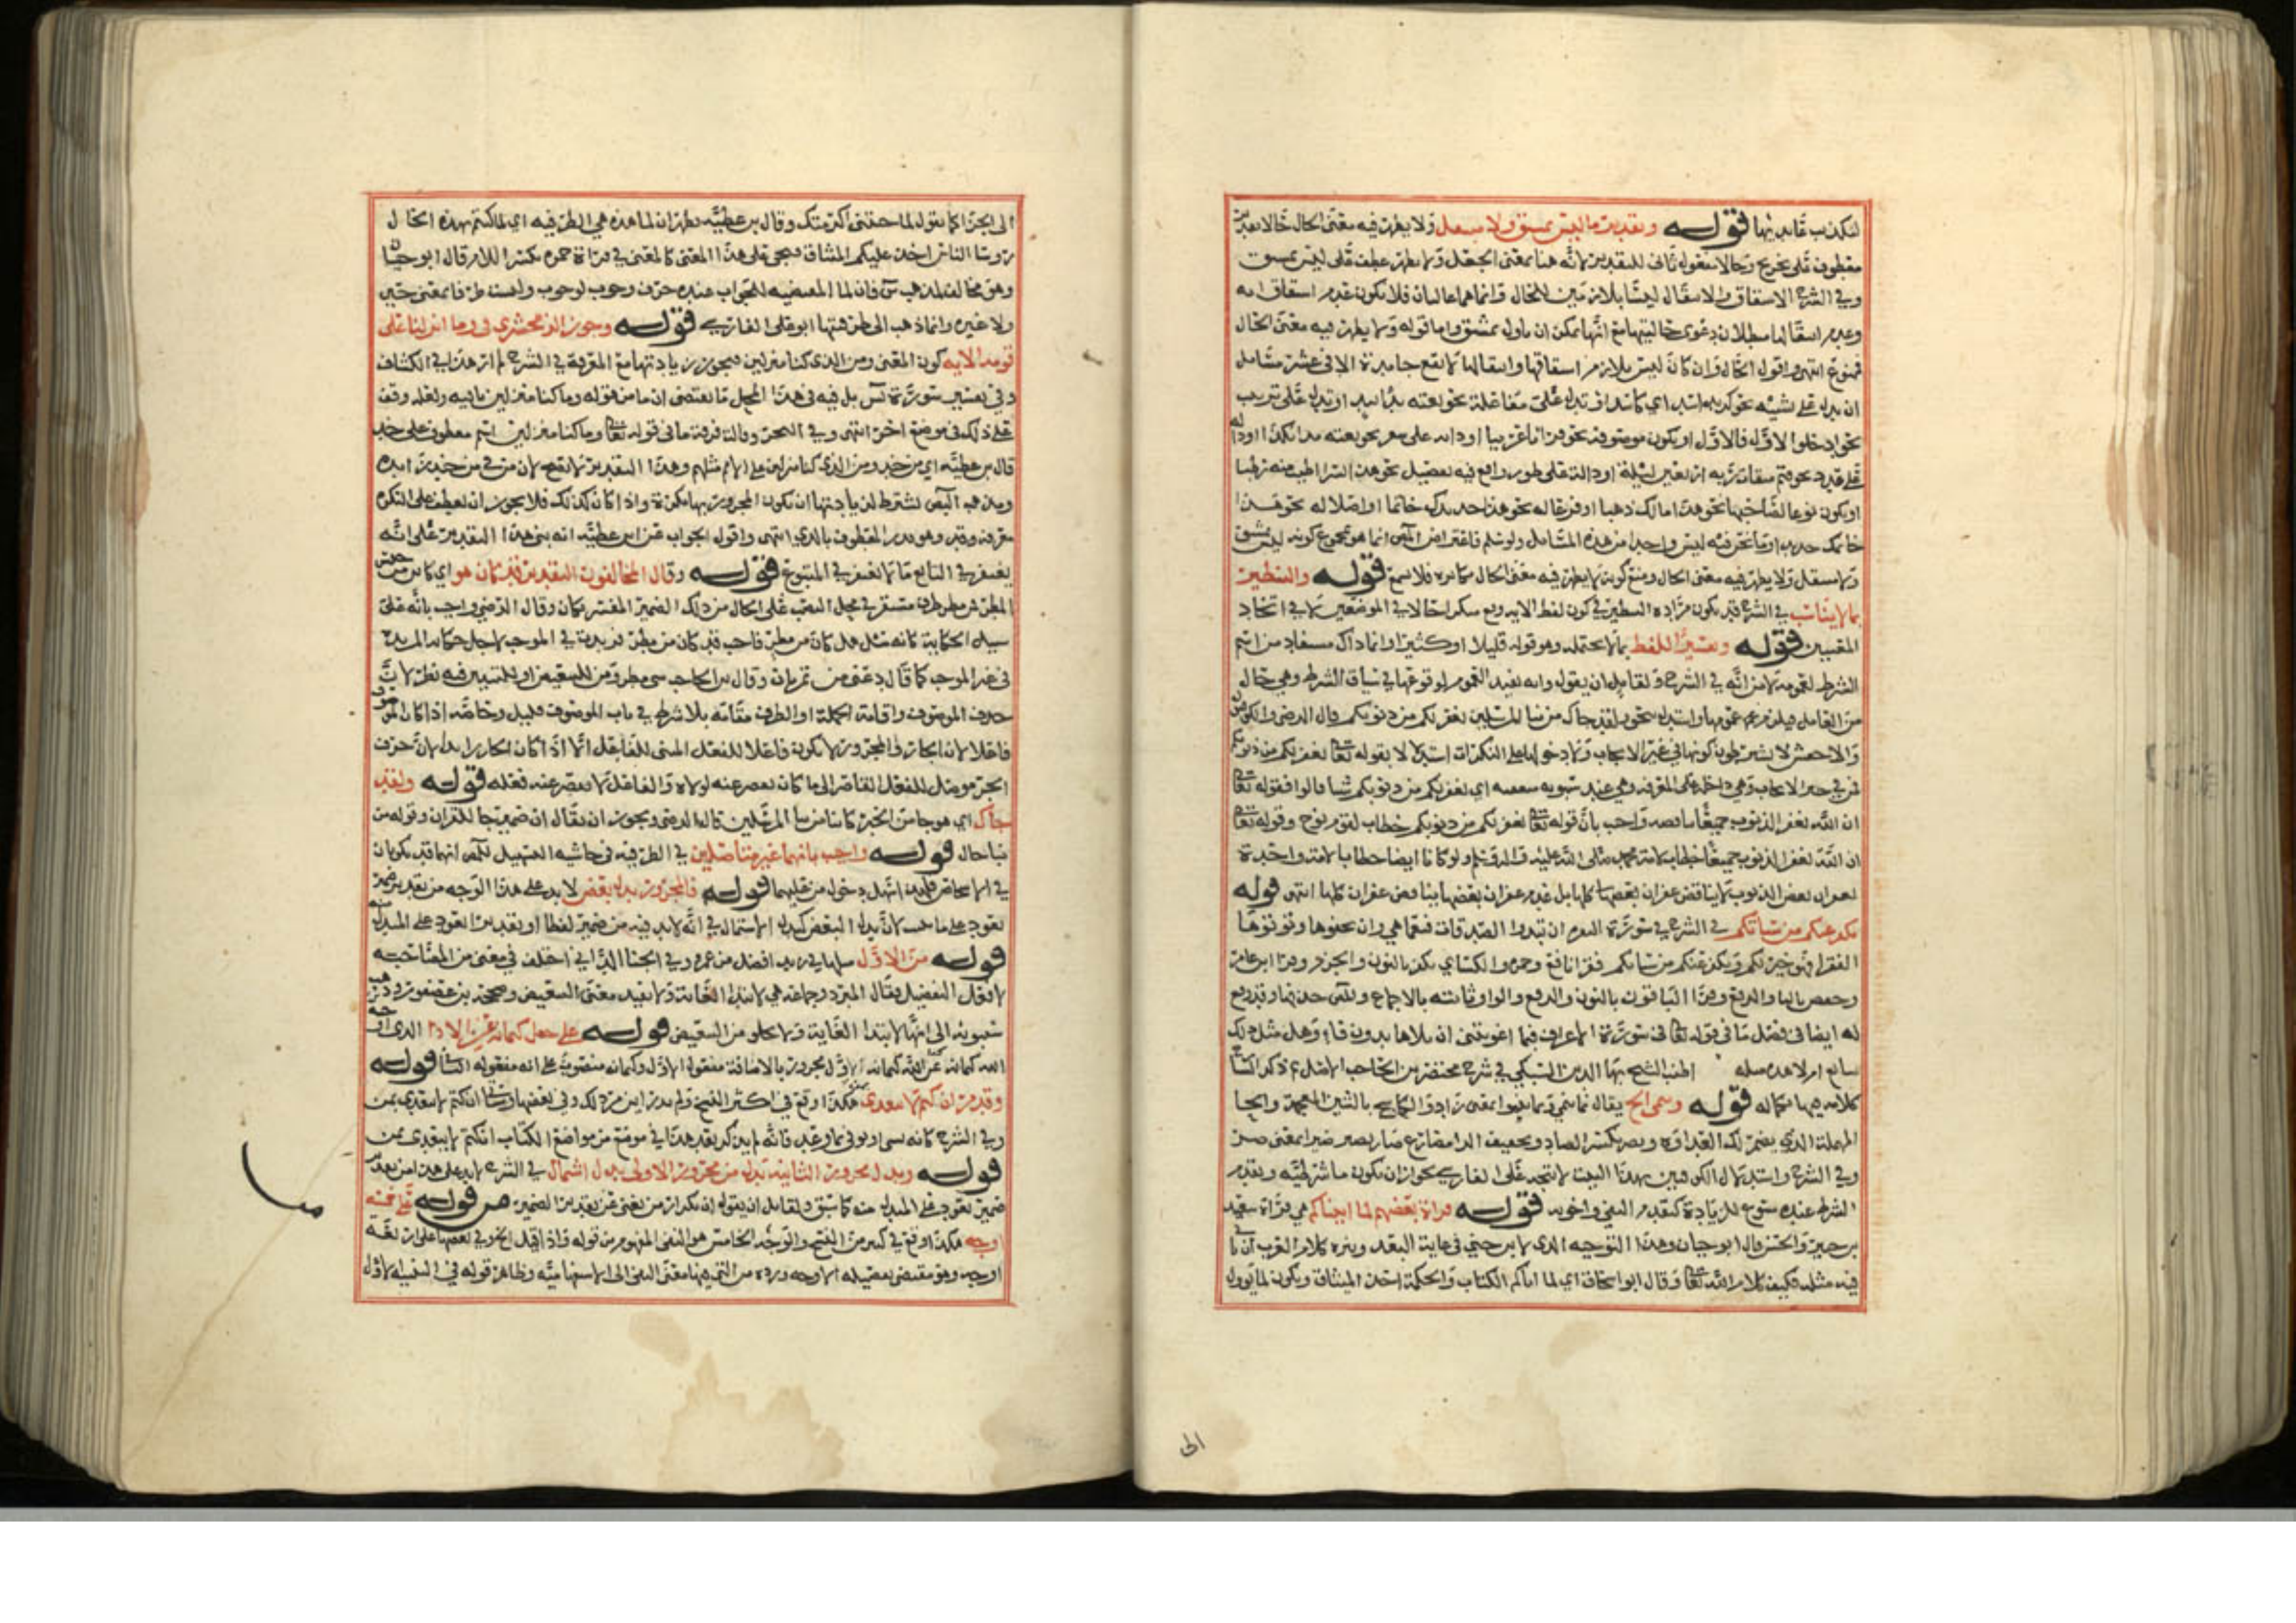 قوله وتقدير ما ليس بمشتق ولا منتقل ولا يظهر فيه معنى الحال حالا
معطوف على يخرج وحالا مفعول ثان للتقدير لانه هنا بمعنى الجعل ولا يظهر عطف على ليس بمشتق
وفي الشرح الاشتقاق والانتقال ليسا بلازمين للحال وانما هما غالبان فلا يكون عدم اشتقاقه
وعدم انتقالها مبطلا لدعوى حاليتها مع انها يمكن ان يأول بمشتق واما قوله ولا يظهر فيه معنى الحال
فممنوع انتهى واقول الحال وان كان ليس بلازم اشتقاقها وانتقالها لا تقع جامدة الا في عشر مسائل
ان يدل على تشبيه نحو كر زيد اسدا اي كاسد او تدل على مفاعلة نحو بعته يدا بيد او تدل على ترتيب
نحو ادخلوا الاول فالاول او يكون موصوفة نحو قرانا عربيا او دالة على سعر نحو بعته مدا بكذا او دالة
على عدد نحو فتم ميقات ربه اربعين ليلة او دالة على طور واقع فيه تفضيل نحو هذا بسرا اطيب منه رطبا
او يكون نوعا لصاحبها نحو هذا مالك ذهبا او فرعا له نحو هذا حديدك خاتما او اصلا له نحو هذا
خاتمك حديدا وما نحن فيه ليس واحدا من هذه المسائل ولو سلم فاعتراض المص انما هو بمجموع كونه ليس بمشتق
ولا منتقل ولا يظهر فيه معنى الحال ومنع كونه لا يظهر فيه معنى الحال مكابرة فلا يسمع قوله والتنظير
بما لا يناسب في الشرح قد يكون مراده التنظير في كون لفظ الاية وقع حالا في الموضعين لا في اتحاد
المعنيين قوله وتفسير اللفظ بما لا يحتمله وهو قوله قليلا او كثيرا وانما ذاك مستفاد من اسم
الشرط لعمومه لا من انه في الشرح ولقائل ان يقول وانه يفيد العموم لوقوعها في سياق الشرط وهي حال
من العامل فيلزم عمومها واستدل بنحو ولقد جاك من نبا المرسلين يغفر لكم من ذنوبكم قال الرضي والكوفيون
والاخفش لا يشترطون كونها في غير الايجاب ولا دخولها على النكرات استدلالا بقوله تعالى يغفر لكم من ذنوبكم
فمن في حيز الايجاب وهي داخلة على المعرفة وهي عند سيبويه مبعضة اي يغفر لكم من ذنوبكم شيئا قالوا فقوله تعالى
ان الله يغفر الذنوب جميعا يناقضه واجيب بان قوله تعالى يغفر لكم من ذنوبكم خطاب لقوم نوح وقوله تعالى
ان الله يغفر الذنوب جميعا خطاب لامة محمد صلى الله عليه واله وسلم ولو كانا ايضا خطابا لامة واحدة
فغفران بعض الذنوب لا يناقض غفران كلها بل عدم غفران بعضها يناقض غفران كلها انتهى قوله
نكفر عنكم من سياتكم في الشرح في سورة البقرة ان تبدوا الصدقات فنعما هي وان تخفوها وتوتوها
الفقرا فهو خير لكم ونكفر عنكم من سياتكم فقرا نافع وحمزة والكسائي نكفر بالنون والجزم وقرا ابن عامر
وحفص باليا والرفع وقرا الباقون بالنون والرفع والواو ثابتة بالاجماع وللمص حذفها وقد وقع
له ايضا في فصل ما في قوله تعالى في سورة الاعراف فبما اغويتني ان تلاها بدون فاء وهل مثل ذلك
سائغ ام لا هذه مسئلة اطنب الشيخ بها الدين السبكي في شرح مختصر بن الحاجب الاصل في ذكر
كلامه فيها بكماله قوله وينمي الخ يقال نما ينمي ونما ينموا بمعنى زاد والكاشح بالشين المعجمة والحا
المهملة الذي يضمر لك العداوة ويضر بكسر الصاد وتخفيف الرا مضارع ضار يضير ضيرا بمعنى ضر
وفي الشرح واستدلال الكوفيين بهذا البيت لا يتجه على الفارسي لجواز ان يكون ما شرطية وتقدم
الشرط عنده مسوغ للزيادة كتقدم النفي واخويه قوله قراة بعضهم لما اتيتكم هي قراة سعيد
بن جبير والحسن قال ابو حيان وهذا التوجيه الذي لابن جني في غاية البعد وينزه كلام العرب ان ياتي
فيه مثله فكيف كلام الله تعالى وقال ابو اسحاق اي لما اتاكم الكتاب والحكمة اخذ الميثاق ويكون لما يؤول
الى
الى الجزا كما تقول لما جئتني اكرمتك وقال بن عطية يظهر ان لما هذه هي الظرفية اي لما كنتم بهذه الحال
روسا الناس اخذ عليكم الميثاق فيجي على هذا المعنى كالمعنى في قراة حمزة بكسر اللام قال ابو حيان
وهو مخالف لمذهب س فان لما المقتضية للجواب عنده حرف وجوب لوجوب وليست ظرفا بمعنى حين
ولا غيره وانما ذهب الى ظرفيتها ابو علي الفارسي قوله وجوز الزمخشري في وما انزلنا على
قومه الاية كون المعنى ومن الذي كنا منزلين فجوز زيادتها مع المعرفة في الشرح لم ار هذا في الكشاف
في تفسير سورة يس بل فيه في هذا المحل ما يقتضي ان ما من قوله وما كنا منزلين نافية ولعله وقف
على ذلك في موضع اخر انتهى وفي البحر وقالت فرقة ما في قوله تعالى وما كنا منزلين اسم معطوف على جند
قال بن عطية اي من جند ومن الذي كنا منزلين على الامم مثلهم وهذا التقدير لا يصح لان من في من جند زائدة
ومذهب البصريين يشترط لزيادتها ان يكون المجرور بها نكرة واذا كان كذلك فلا يجوز ان يعطف على النكرة
معرفة وقدر وهو يريد المعطوف بالذي انتهى واقول الجواب عن ابن عطية انه بنى هذا التقدير على انه
يغتفر في التابع ما لا يغتفر في المتبوع قوله وقال المخالفون التقدير قد كان هو اي كاين من جنس
المطر من مطر ظرف مستقر في محل النصب على الحال من ذلك الضمير المفسر بكان وقال الرضي واجيب بانه على
سبيل الحكاية كانه سئل هل كان من مطر فاجيب قد كان من مطر فزيدت في الموجب لاجل حكاية المزيدة
في غير الموجب كما قال دعني من تمرتان وقال بن الحاجب شي مطر ومن للتبعيض او للتبيين فيه نظر لان
حذف الموصوف واقامة الجملة او الظرف مقامه بلا شرط في باب الموصوف قليل وخاصة اذا كان الموصوف
فاعلا لان الجار والمجرور لا يكون فاعلا للفعل المبنى للفاعل الا اذا كان الجار زايدا لان حرف
الجر موصل للفعل القاصر الى ما كان يقصر عنه لولاه والفاعل لا يقصر عنه فعله قوله ولقد
جاك اي هو جا من الخبر كاينا من نبا المرسلين قاله الرضي ويجوز ان يقال ان ضمير جا للقران وقوله من
نبا حال قوله واجيب بانهما غير متاصلين في الظرفية في حاشية التسهيل للمص انهما قد يكونان
قوله فالمجرور بدل بعض لا بد على هذا الوجه من تقدير ضمير
يعود على ما لان بدل البعض كبدل الاشتمال في انه لابد فيه من ضمير لفظا او تقديرا يعود على المبدل
قوله من الاول في زيد افضل من عمرو وفي الجنا الداني اختلف في معنى من المصاحبة
لافعل التفضيل فقال المبرد وجماعة هي لابتدا الغاية ولا تفيد معنى التبعيض وصححه بن عصفور وذهب
سيبويه الى انها لابتدا الغاية ولا يخلو من التبعيض قوله على جعل كتمانه عن الاداء الذي اوجبه
الله كتمانه عن الله كتمانه الاول مجرور بالاضافة مفعول الاول وكتمانه منصوب على انه مفعوله الثاني قوله
وقد مر ان كتم لا يتعدى بمن هكذا وقع في اكثر النسخ ولم يدر اين مر ذلك وفي بعضها وسياتي ان كتم لا يتعدى بمن
وفي الشرح كانه نسي او نوى بما وعد فانه لم يذكر بعد هذا في موضع من مواضع الكتاب ان كتم لا يتعدى بمن
قوله ومجرور الثانية بدل من مجرور الاولى بدل اشتمال في الشرح لابد على هذا من تقدير
ضمير يعود على المبدل منه كما سبق ولقائل ان يقول ان تكرار من يغني عن تقدير الضمير قوله على خمسة
اوجه هكذا وقع في كثير من النسخ والوجه الخامس هو النفي المفهوم من قوله واذا قيل الخ وفي بعضها على اربعة
اوجه وهو مقتضى تفصيله الاوجه ورده من التي فيها معنى النفي الى الاستفهامية وظاهر قوله في التنبيه الاول